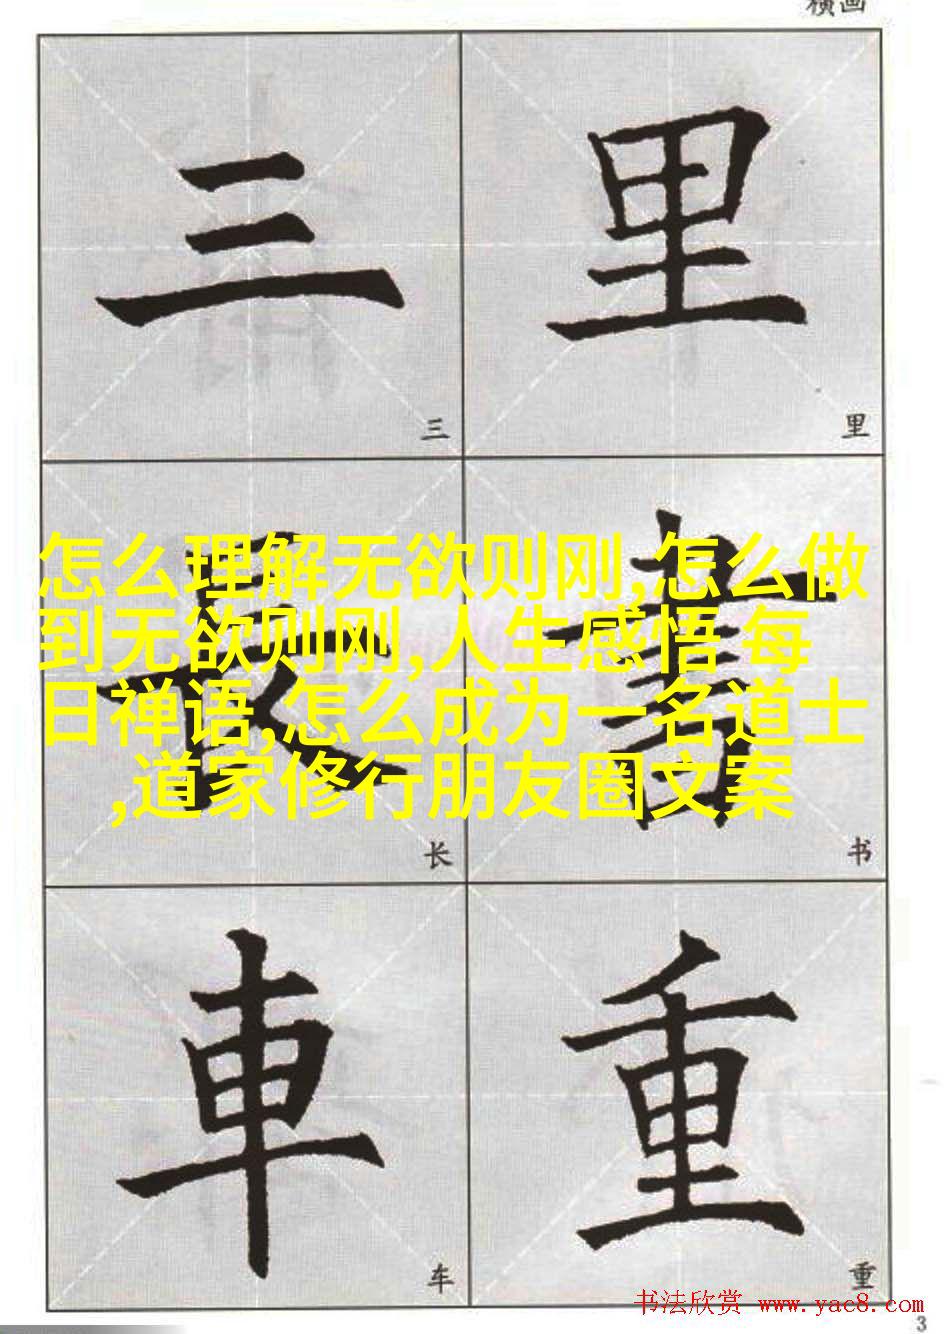 横画
三 里
三 里
怎么理解无欲则刚,怎么做
到无欲则刚,人生感悟 每
日禅语,怎么成为一名道士
,道家修行朋友圈文案
長 書
长 书
車 重
车 重
书法欣赏 www.yac8.com
3